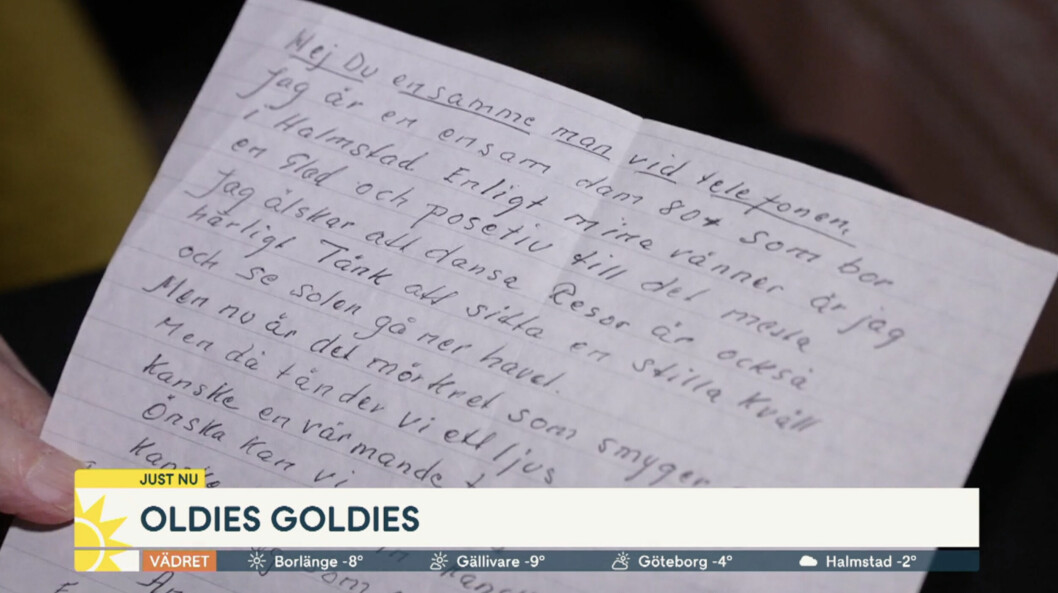 Hej Du ensamme man vid telefonen,
Jag är en ensam dam 80+ som bor
i Halmstad Enligt mina vänner är jag
en Glad och posetiv till det mesta
Jag älskar att dansa Resor är också
härligt Tänk att sitta en stilla Kväll
och se solen gå ner havet.
Men nu är det mörkret som smyger
Men då tänder vi ett ljus
Kanske en värmande
Önska Kan vi
Kanske
JUST NU
OLDIES GOLDIES
VÄDRET Borlänge -8° Gällivare -9° Göteborg -4° Halmstad -2°
som